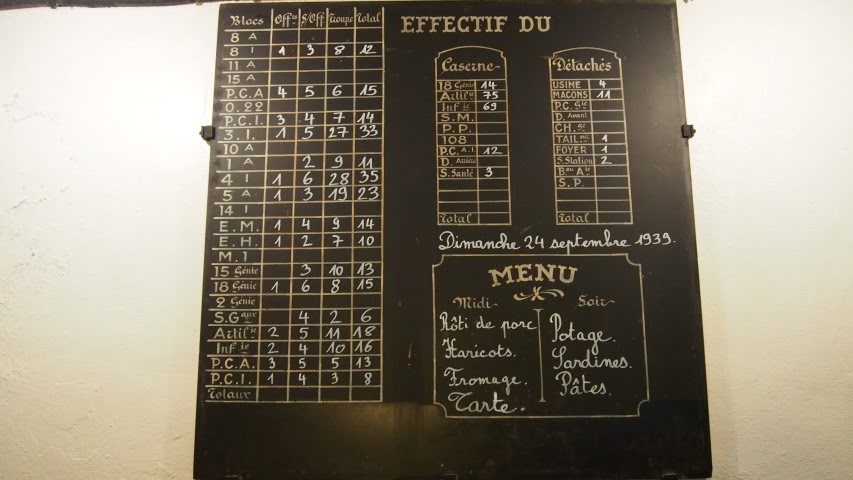 Blocs Offrs S/Off Troupe Total
8 A
8 I 1 3 8 12
11 A
15 A
P.C.A 4 5 6 15
O.22
P.C.I. 3 4 7 14
3.I. 1 5 27 33
10 A
1 A 2 9 11
4 I 1 6 28 35
5 A 1 3 19 23
14 I
E.M. 1 4 9 14
E.H. 1 2 7 10
M.1
15 Génie 3 10 13
18 Génie 1 6 8 15
2 Génie
S.Gaux 4 2 6
Artilie 2 5 11 18
Infie 2 4 10 16
P.C.A. 3 5 5 13
P.C.I. 1 4 3 8
Totaux
EFFECTIF DU
Caserne
18 Génie 14
Artilie 75
Infie 69
S.M.
P.P.
108
P.C.A.I. 12
D. Arrière
S. Santé 3
Total
Détachés
USINE 4
MACONS 11
P.C. Ste
D. Avant
CH. ge
TAIL eur 1
FOYER 1
S. Station 2
Bau Ale
S. P.
Total
Dimanche 24 septembre 1939.
MENU
Midi
Rôti de porc
Haricots.
Fromage.
Tarte.
Soir
Potage.
Sardines.
Pâtes.